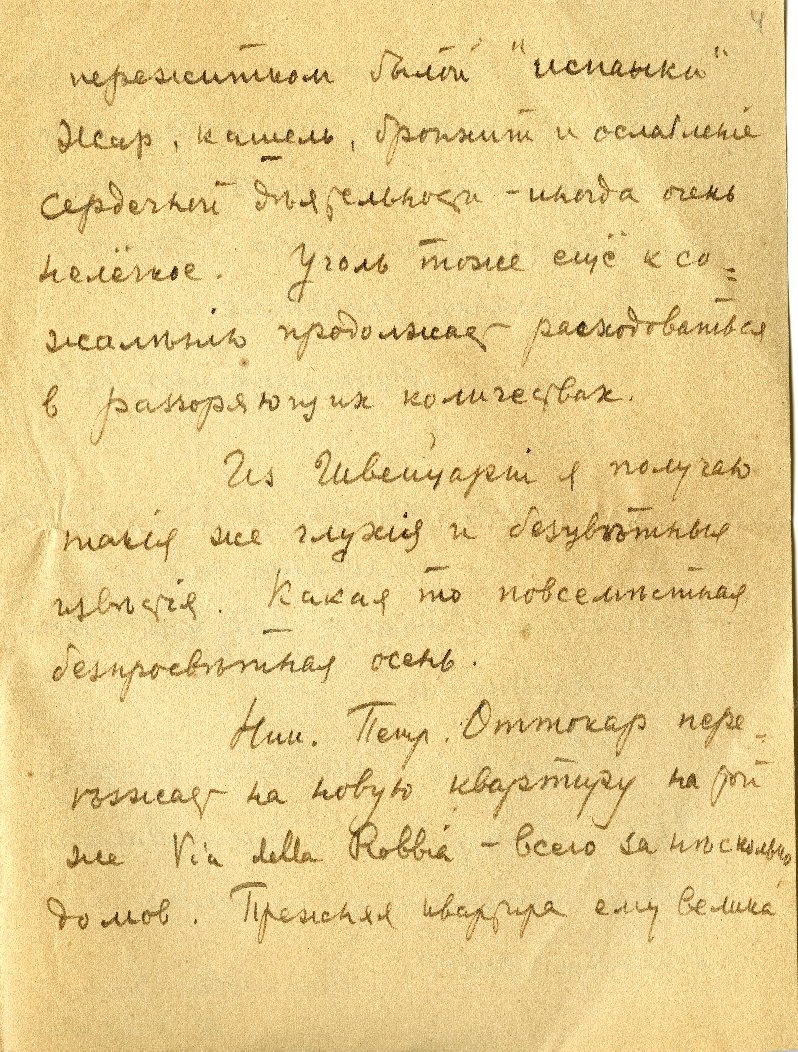 4
пережитком былой "испанки"
Жар, кашель, бронхит и ослабленіе
сердечной дѣятельности - иногда очень
нелёгкое. Уголь тоже ещё к со=
жалѣнію продолжает расходоваться
в разоряющих количествах.
Из Швейцаріи я получаю
такія же глухія и безцвѣтныя
извѣстія. Какая то повсемѣстная
безпросвѣтная осень.
Ник. Петр. Оттокар пере=
ѣзжает на новую квартиру на той
же Via della Robbia - всего за нѣсколько
домов. Прежняя квартира ему велика